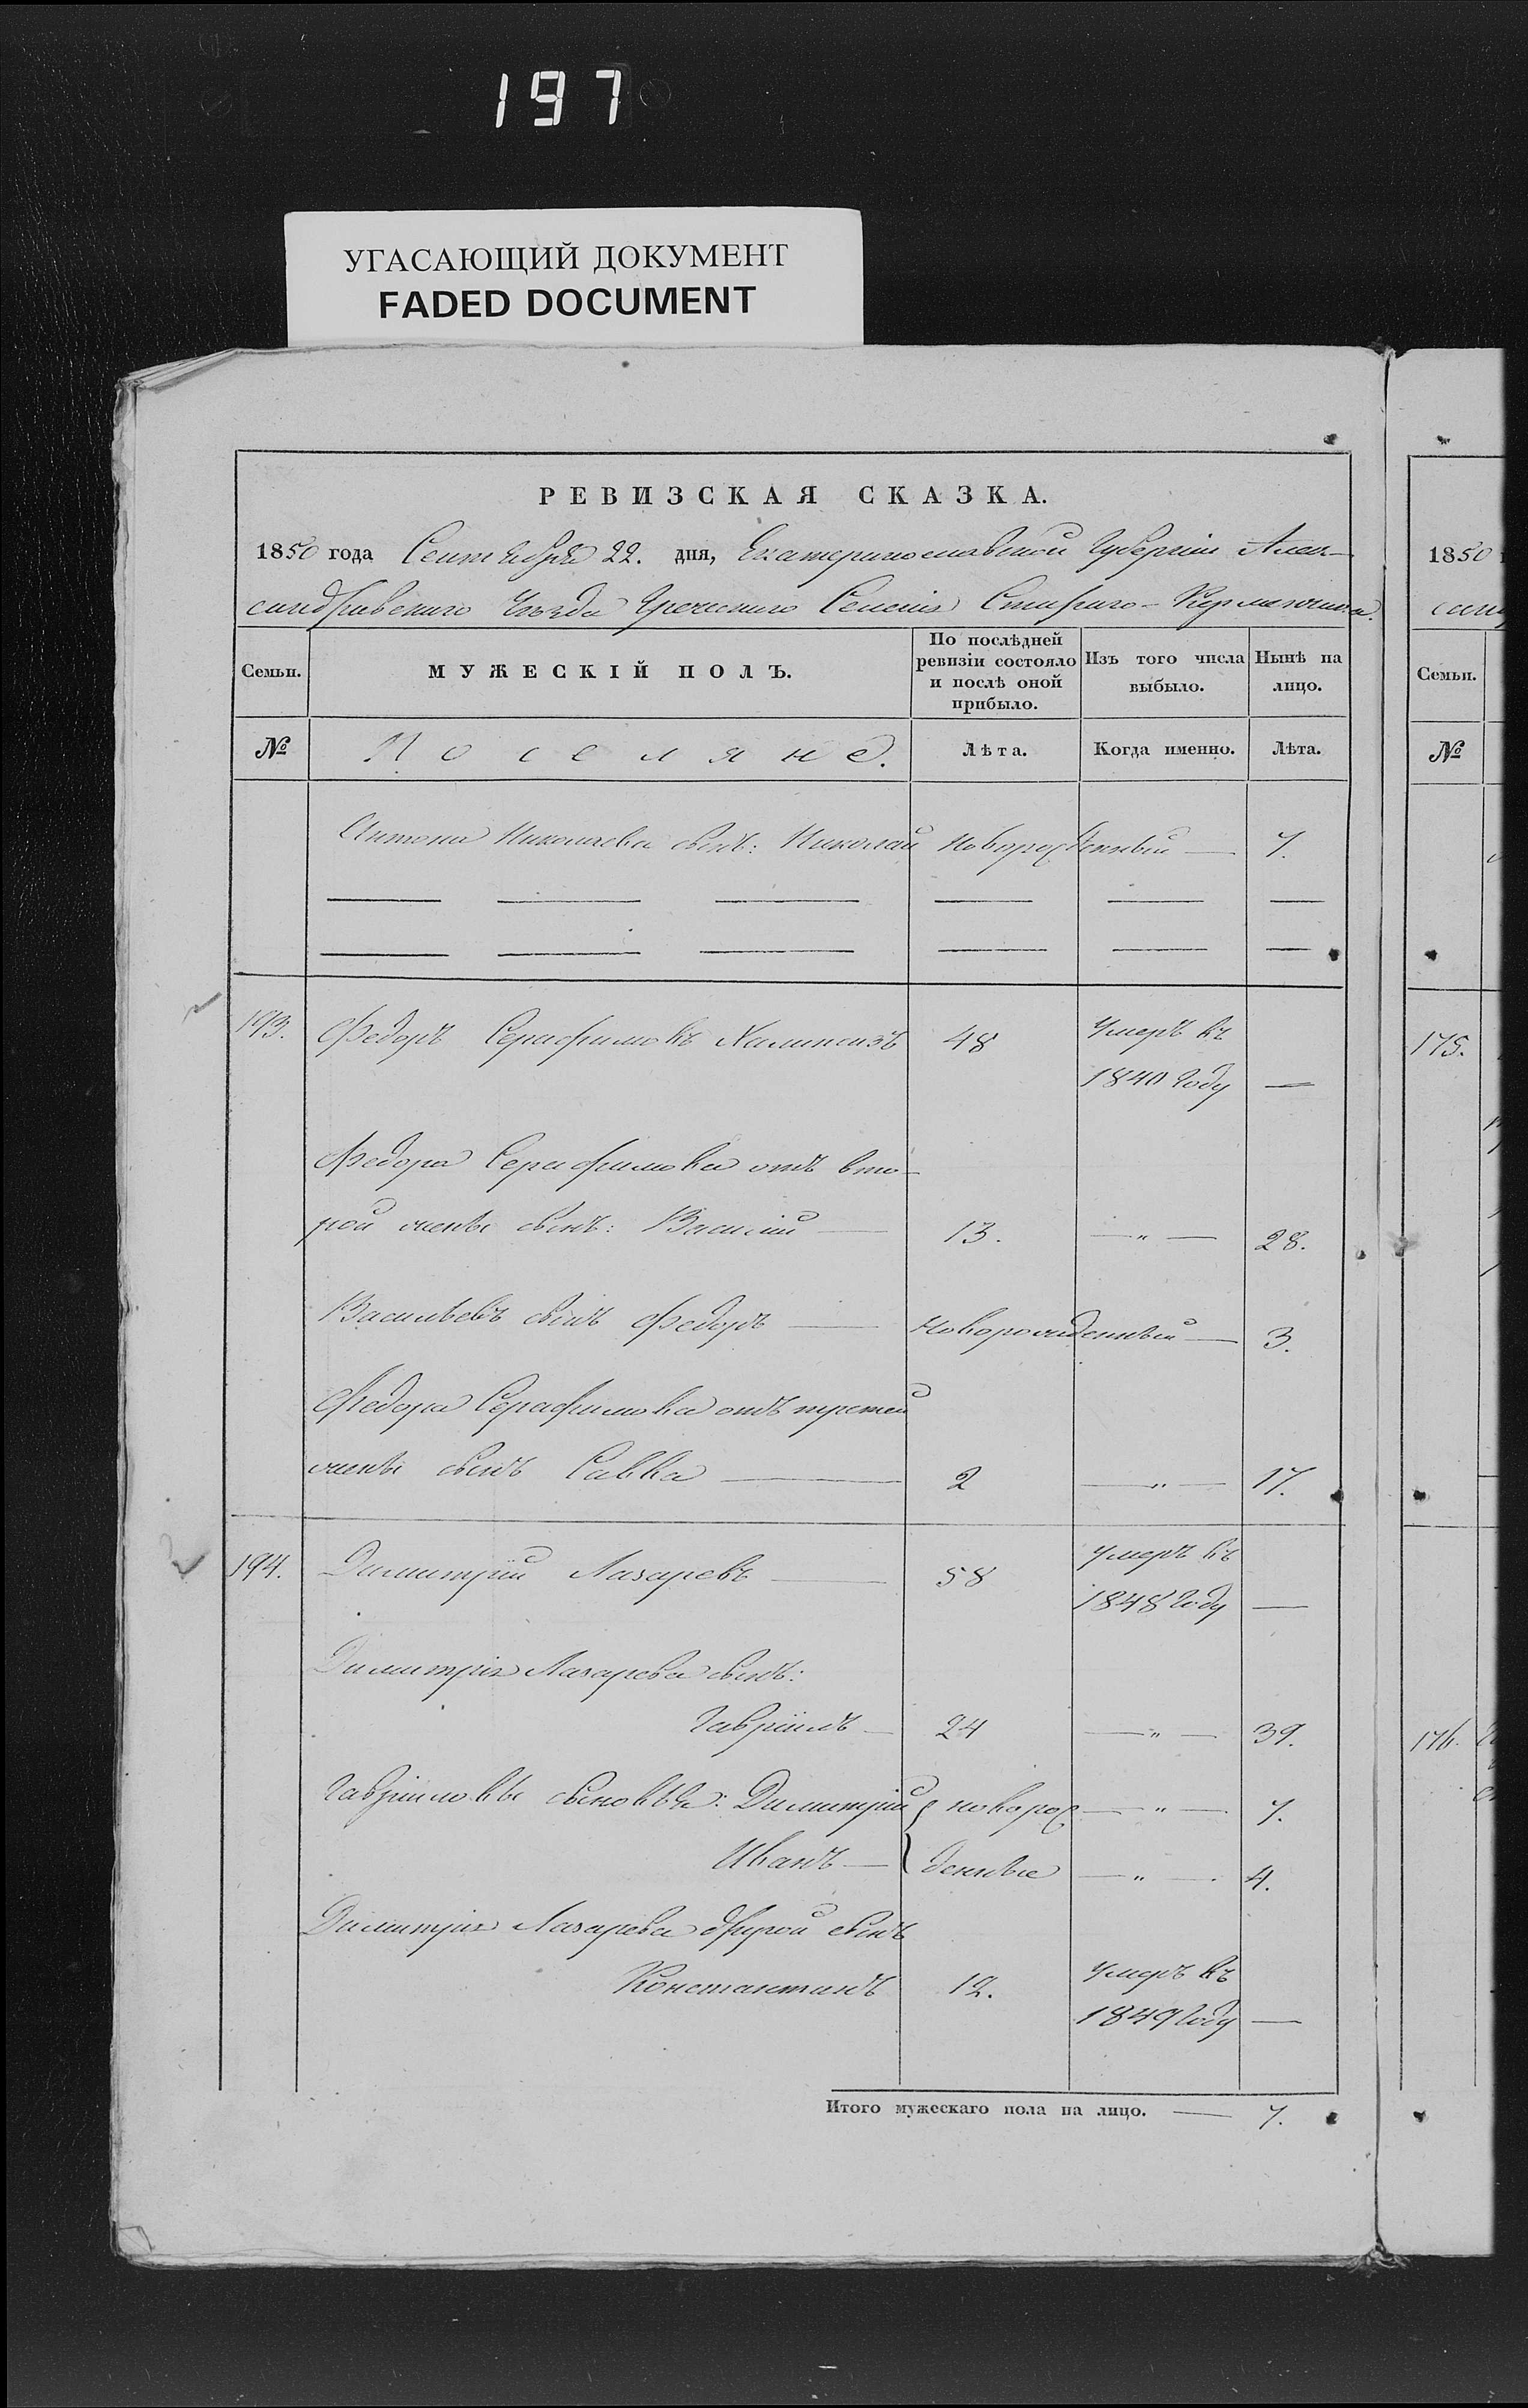 197
УГАСАЮЩИЙ ДОКУМЕНТ
FADED DOCUMENT
РЕВИЗСКАЯ СКАЗКА.
1850 года Сентября 22. дня, Екатеринославской Губерніи Алек-
сандровского Уѣзда Греческого Селенія Старого-Керменчика.
Семьи. МУЖЕСКІЙ ПОЛЪ. По послѣдней ревизіи состояло и послѣ оной прибыло. Изъ того числа выбыло. Нынѣ на лицо.
№ Поселяне. Лѣта. Когда именно. Лѣта.
Антона Николаева сынъ: Николай новорожденный — 7.
193. Федоръ Серафимовъ 48 Умеръ въ
1840 году —
Федора Серафимова отъ вто-
рой жены сынъ: Василій — 13. — " — 28.
Васильевъ сынъ Федоръ — новорожденный — 3.
Федора Серафимова отъ третей
жены сынъ Савва — 2 — " — 17.
194. Димитрій Лазаревъ — 58 Умеръ въ
1848 году —
Димитрія Лазарева сынъ:
Гавріилъ — 24 — " — 39.
Гавріиловы сыновья: Димитрій новорож — " — 7.
Иванъ — денные — " — 4.
Димитрія Лазарева другой сынъ
Константинъ 12. Умеръ въ
1849 году —
Итого мужескаго пола на лицо. — 7.
1850
Семьи.
№
175.
176.